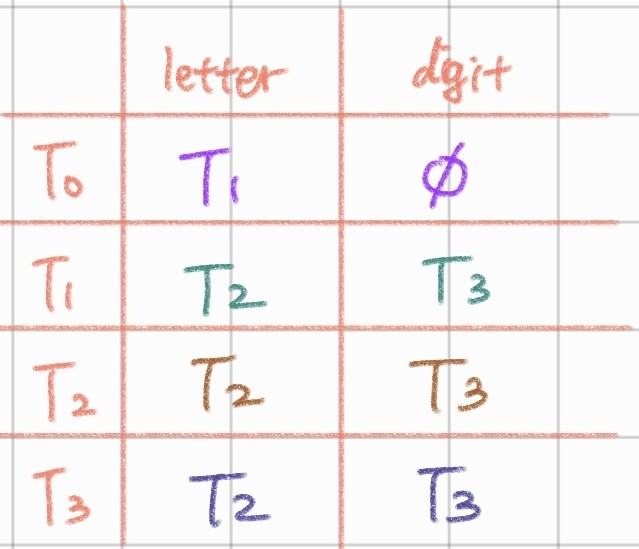 letter dgit
T₀ T₁ ∅
T₁ T₂ T₃
T₂ T₂ T₃
T₃ T₂ T₃